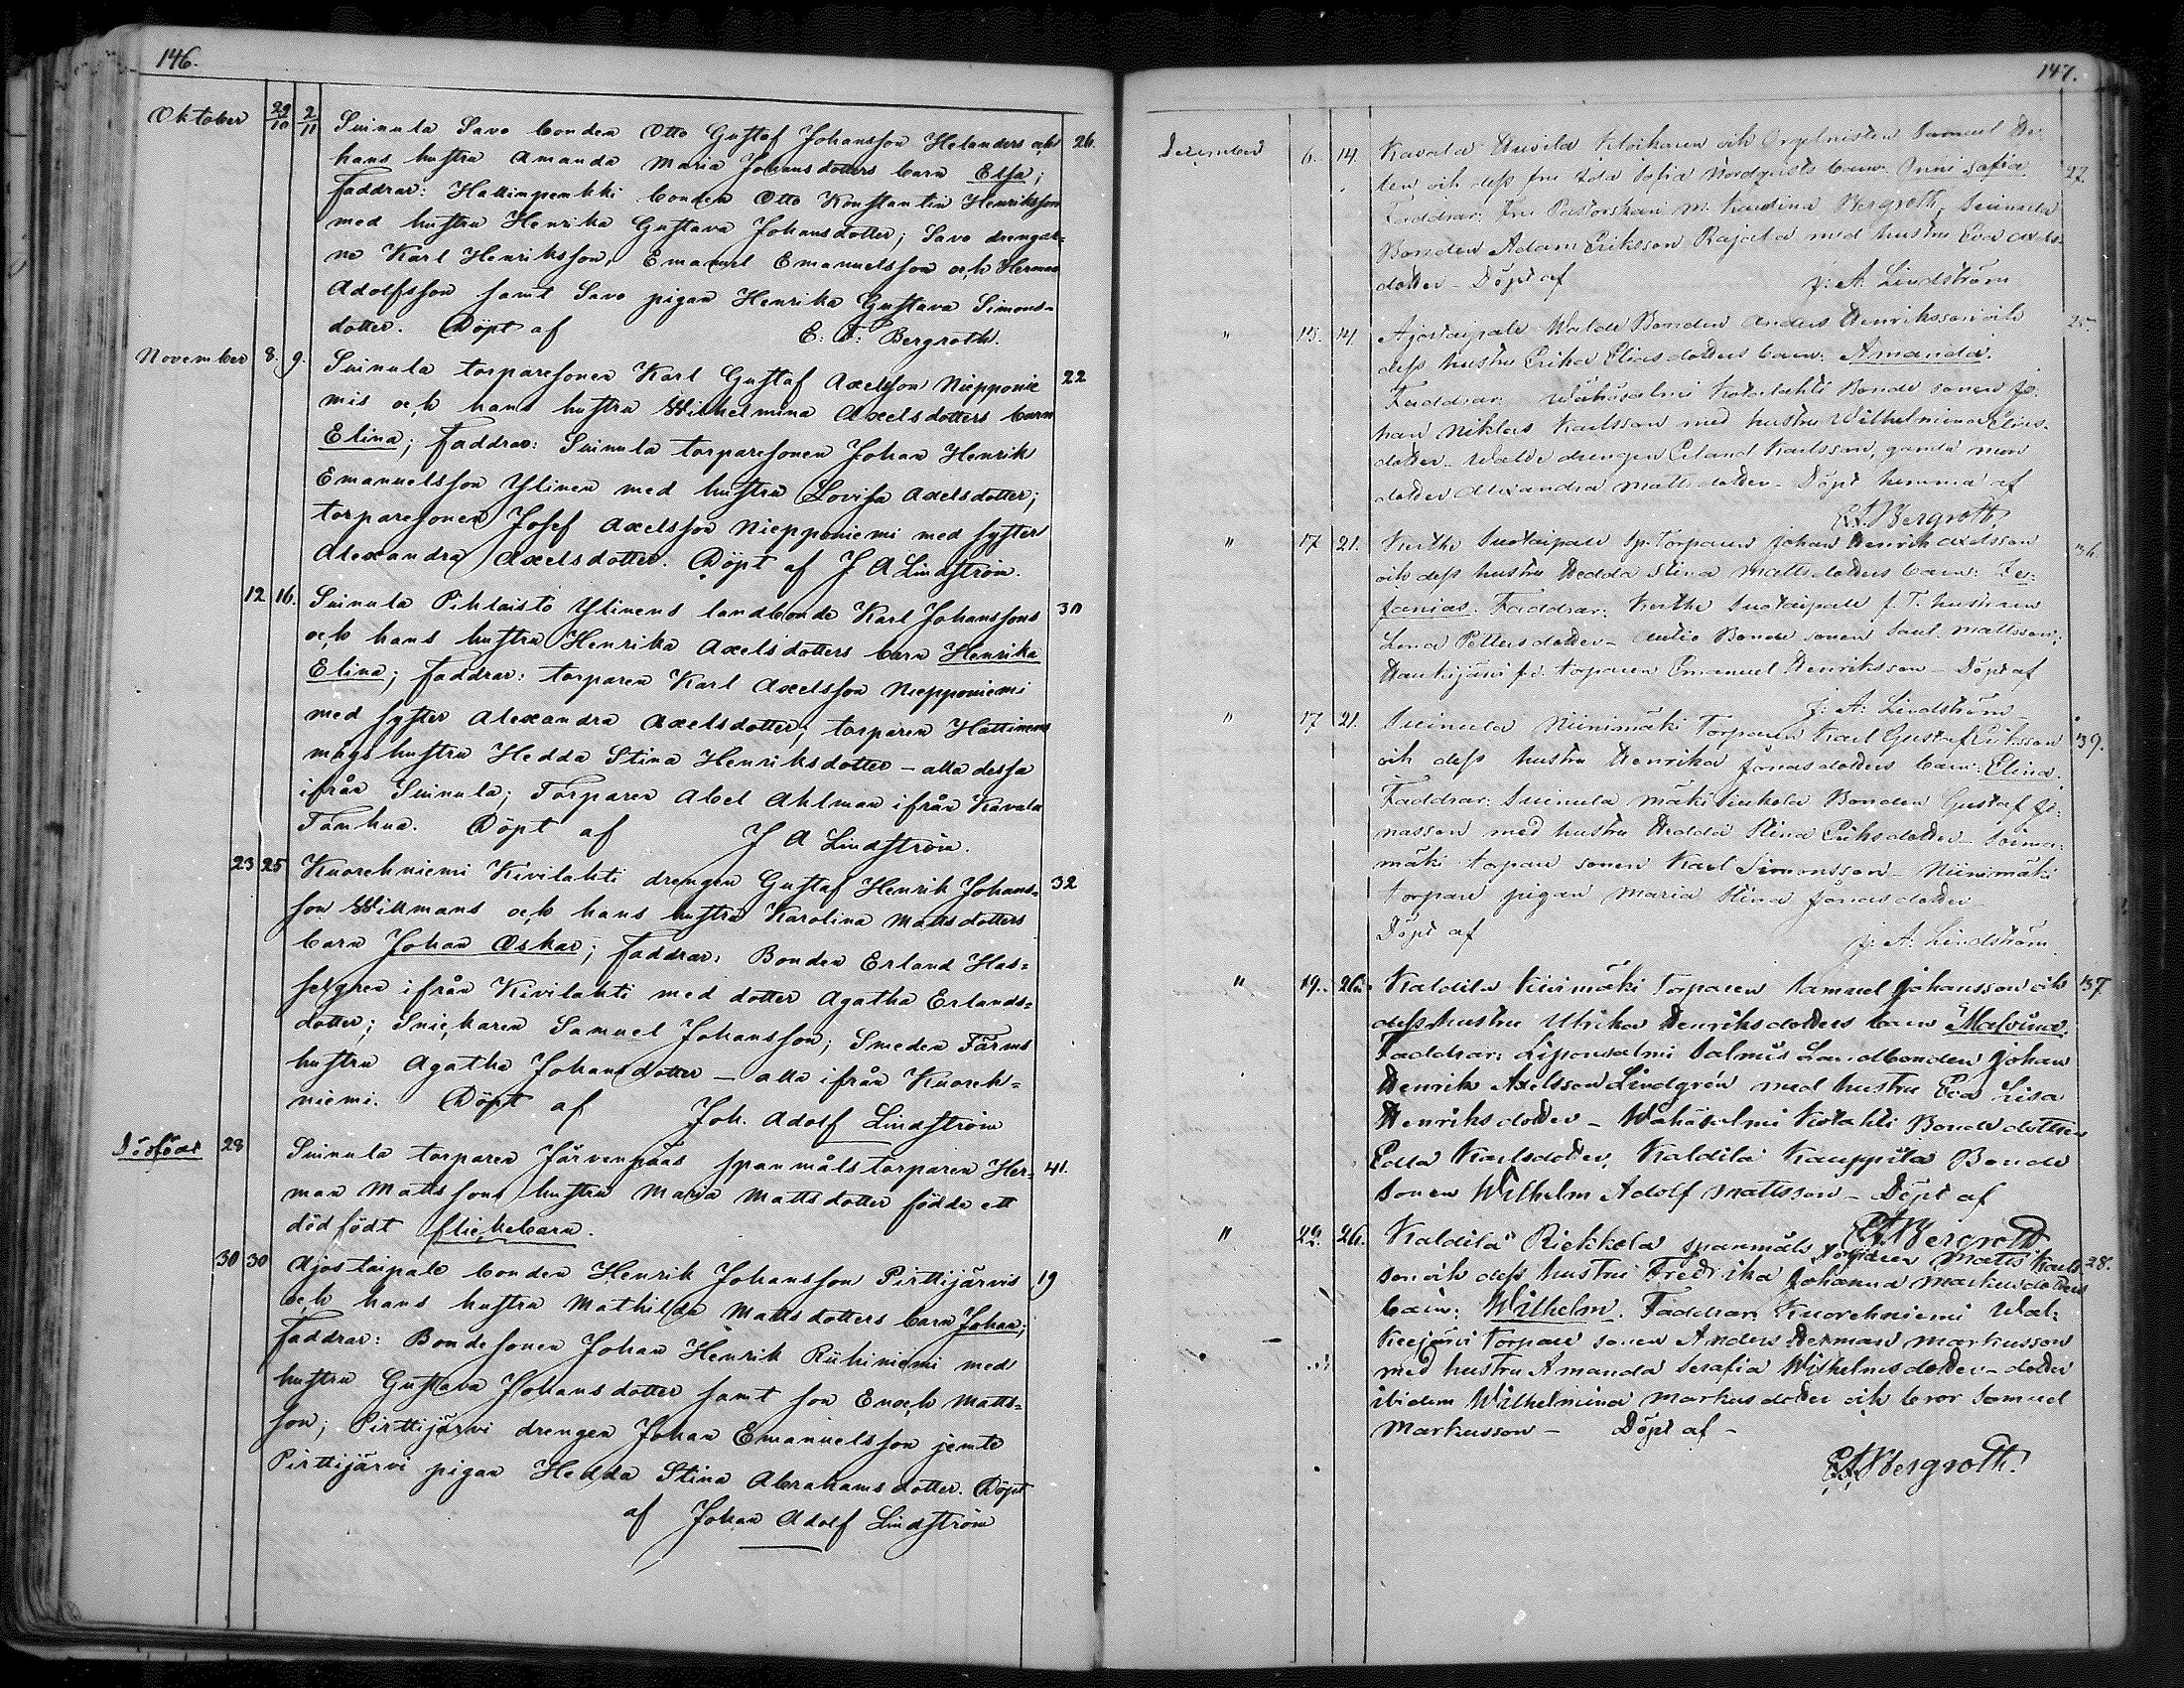 146.
Oktober 29/10 2/11 Suinula Savo bonden Otto Gustaf Johansson Helanders och 26.
hans hustru Amanda Maria Johansdotters barn Elsa;
faddrar: Hallinpenkki bonden Otto Konstantin Henriksson
med hustru Henrika Gustava Johansdotter; Savo drengar-
ne Karl Henriksson, Emanuel Emanuelsson och Herman
Adolfsson samt Savo pigan Henrika Gustava Simons-
dotter. Döpt af E. A. Bergroth.
November 8. 9. Suinula torparesonen Karl Gustaf Axelsson Niepponie 22
mis och hans hustru Wilhelmina Axelsdotters barn
Elina; faddrar: Suinula torparesonen Johan Henrik
Emanuelsson Ylinen med hustru Lovisa Axelsdotter;
torparesonen Josef Axelsson Niepponiemi med syster
Alexandra Axelsdotter. Döpt af J A Lindström.
12 16. Suinula Pihlaisto Ylinens landbonde Karl Johanssons 30
och hans hustru Henrika Axelsdotters barn Henrika
Elina; faddrar: torparen Karl Axelsson Niepponiemi
med syster Alexandra Axelsdotter; torparen Hattinens
mågs hustru Hedda Stina Henriksdotter – alla dessa
ifrån Suinula; Torparen Abel Ahlman ifrån Kavala
Tomhua. Döpt af J A Lindström.
23 25 Kuorehniemi Kivilahti drengen Gustaf Henrik Johans= 32
son Willmans och hans hustru Karolina Mattsdotters
barn Johan Oskar; faddrar: Bonden Erland Has=
selgren ifrån Kivilahti med dotter Agatha Erlands=
dotter; Snickaren Samuel Johansson; Smeden Färms
hustru Agatha Johansdotter – alla ifrån Kuoreh=
niemi. Döpt af Joh. Adolf Lindström
Dödfödt 28 Suinula torparen Järvenpääs spanmåls torparen Her- 41.
man Mattssons hustru Maria Mattsdotter födde ett
dödfödt flickebarn.
30 30 Ajostaipale bonden Henrik Johansson Pirttijärvis 19
och hans hustru Mathilda Mattsdotters barn Johan;
faddrar: Bondesonen Johan Henrik Riihiniemi med
hustru Gustava Johansdotter samt son Enoch Matts=
son; Pirttijärvi drengen Johan Emanuelsson jemte
Pirttijärvi pigan Hedda Stina Abrahamsdotter. Döpt
af Johan Adolf Lindström
147.
December 6. 14. Kavala Klockaren och Orgelnisten Samuel 27.
och dess fru Ida Sofia Nordqvists barn: Anni Sofia
Faddrar: Fru Pastorskan M. Kardina Bergroth, Suinula
Bonden Adam Eriksson Rajala med hustru Eva Axels-
dotter – Döpt af J: A: Lindström
" 13. 14 Ajostaipale Walde Bonden Anders Henriksson och 25.
dess hustru Erika Eliasdotters barn: Amanda.
Faddrar: Wähäsalmi Kotalahti Bonde sonen Jo-
han Niklas Karlsson med hustru Wilhelmina Elias-
dotter – Walde drengen Erland Karlsson, gamla mor
dotter Alexandra Mattsdotter – Döpt hemma af
E A Bergroth.
" 17 21. Kerthe Suotaipale Sp. Torparen Johan Henrik Axelsson 36.
och dess hustru Hedda Stina Mattsdotters barn: Ze-
fanias. Faddrar: Kerthe Suotaipale f. T. hustrun
Lena Pettersdotter – Antio Bonde sonen Saul Mattsson;
Haukijärvi f.d. torparen Emanuel Henriksson – Döpt af
J: A: Lindström
" 17 21. Suinula Niinimäki Torparen Karl Gustaf Eriksson 39.
och dess hustru Henrika Jonasdotters barn: Elina.
Faddrar: Suinula Mäki Sinkola Bonden Gustaf Jo-
nasson med hustru Hedda Stina Eriksdotter –
mäki torpare sonen Karl Simonsson – Niinimäki
torpare pigan Maria Stina Jonasdotter –
Döpt af J: A: Lindström
" 19. 26. Kaldila Kivimäki Torparen Samuel Johansson och 37
dess hustru Ulrika Henriksdotters barn Malvina.
Faddrar: Liponsalmi Salmis Landbonden Johan
Henrik Axelsson Lindgrén med hustru Eva Lisa
Henriksdotter – Wähäsalmi Kotalahti Bonde dottren
Edla Karlsdotter, Kaldila Kauppila Bonde
sonen Wilhelm Adolf Mattsson – Döpt af
E A Bergroth
" 22. 26. Kaldila Riekkola spanmåls Torparen Matts Karls- 28.
son och dess hustru Fredrika Johanna Markusdotters
barn: Wilhelm. Faddrar: Kuorehniemi Wal-
keejärvi Torpare sonen Anders Herman Markusson
med hustru Amanda Serafia Wilhelmsdotter – dotter
ibidem Wilhelmina Markusdotter och bror Samuel
Markusson – Döpt af –
E A Bergroth.